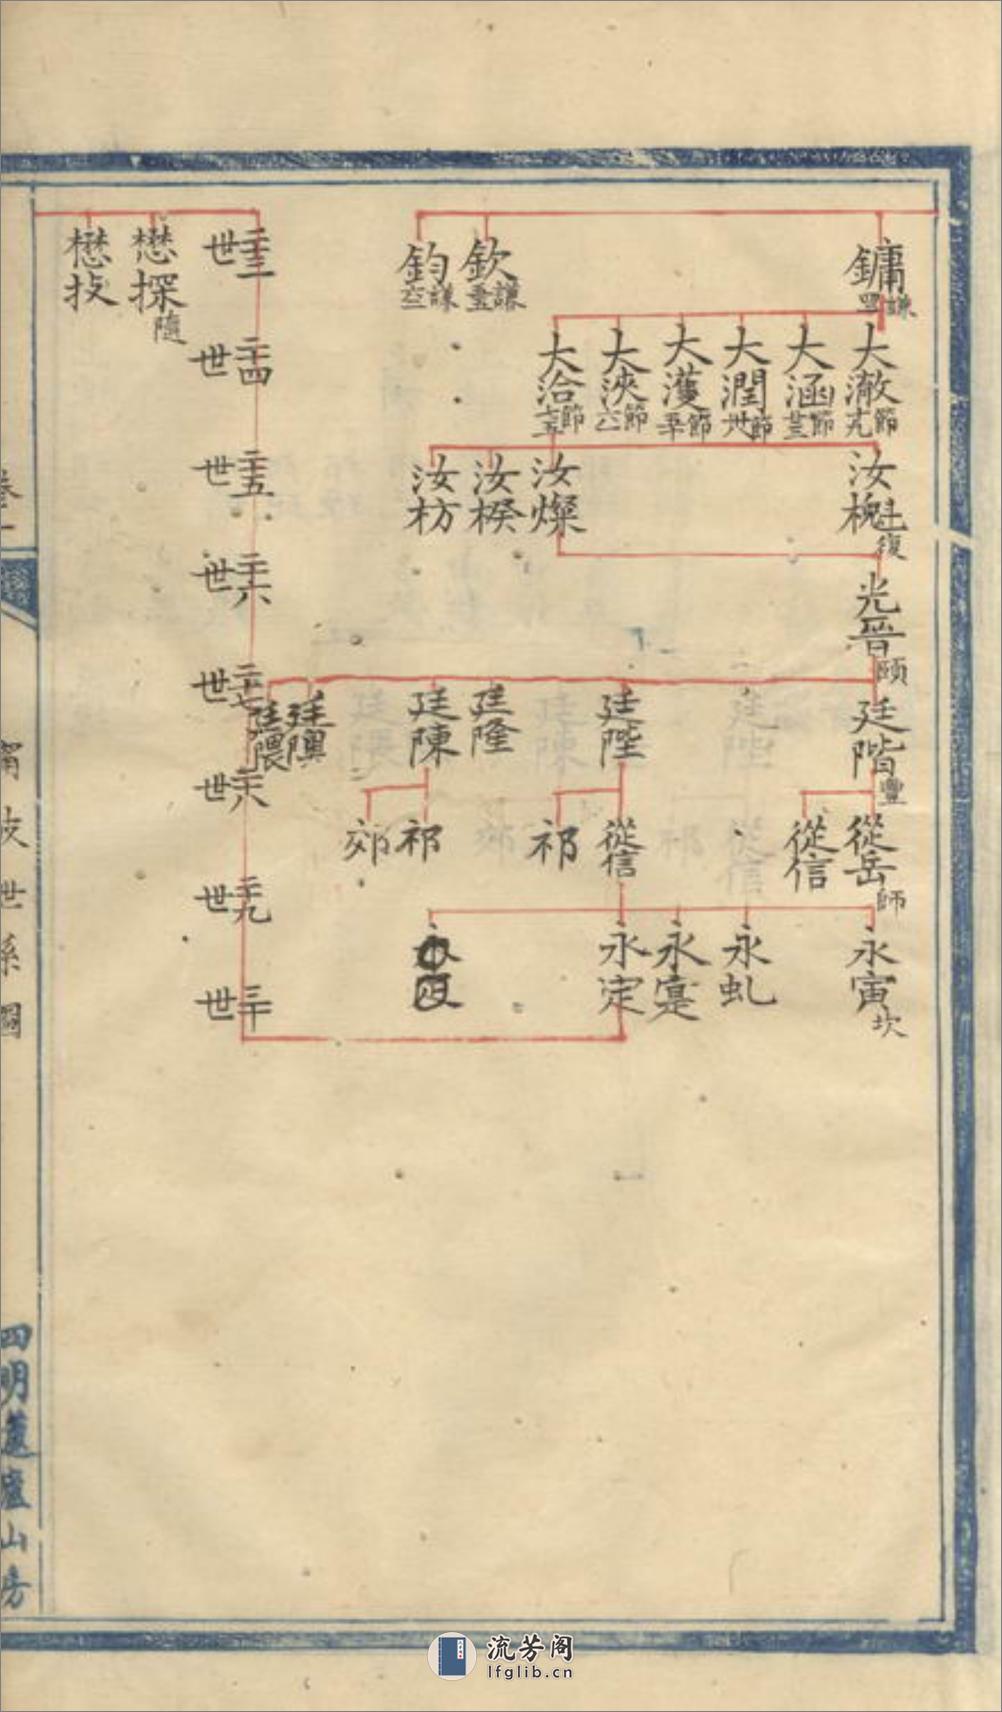 鏞 謙四
欽 謙五
鈞 謙六
大澈 節九
大涵 節廿三
大潤 節卅
大濩 節五十
大浹 節六
大洽 節
汝槐 復
汝燦
汝楑
汝枋
光晉 頤
廷階 豐
廷陛
廷隆
廷陳
廷隩
廷隈
從岳 師
從信
從信
祁
祁
郊
永寅 坎
永虬
永寔
永定
二十三世
二十四世
二十五世
二十六世
二十七世
二十八世
二十九世
三十世
懋探 隨
懋技
卷一
甯波世系圖
四明蘆廬山房
流芳阁
lfglib.cn